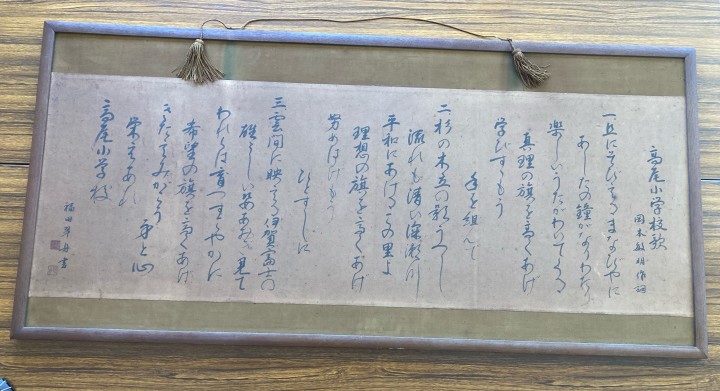 高尾小学校歌
岡本敏明作詞
一丘にそびえるまなびやに
あしたの鐘がなりわたり
楽しいうたがわいてくる
真理の旗を高くあげ
手を組んで
学びましょう
二杉の木立の影うつし
流れも清い深瀬川
平和にあけるこの里よ
理想の旗を高くあげ
ひとすじに
努めはげもう
三雲間に映える伊賀富士の
雄々しい姿あおぎ見て
われらは育つすこやかに
希望の旗を高くあげ
きたえみがこう 身と心
栄えあれ
高尾小学校
福田 書